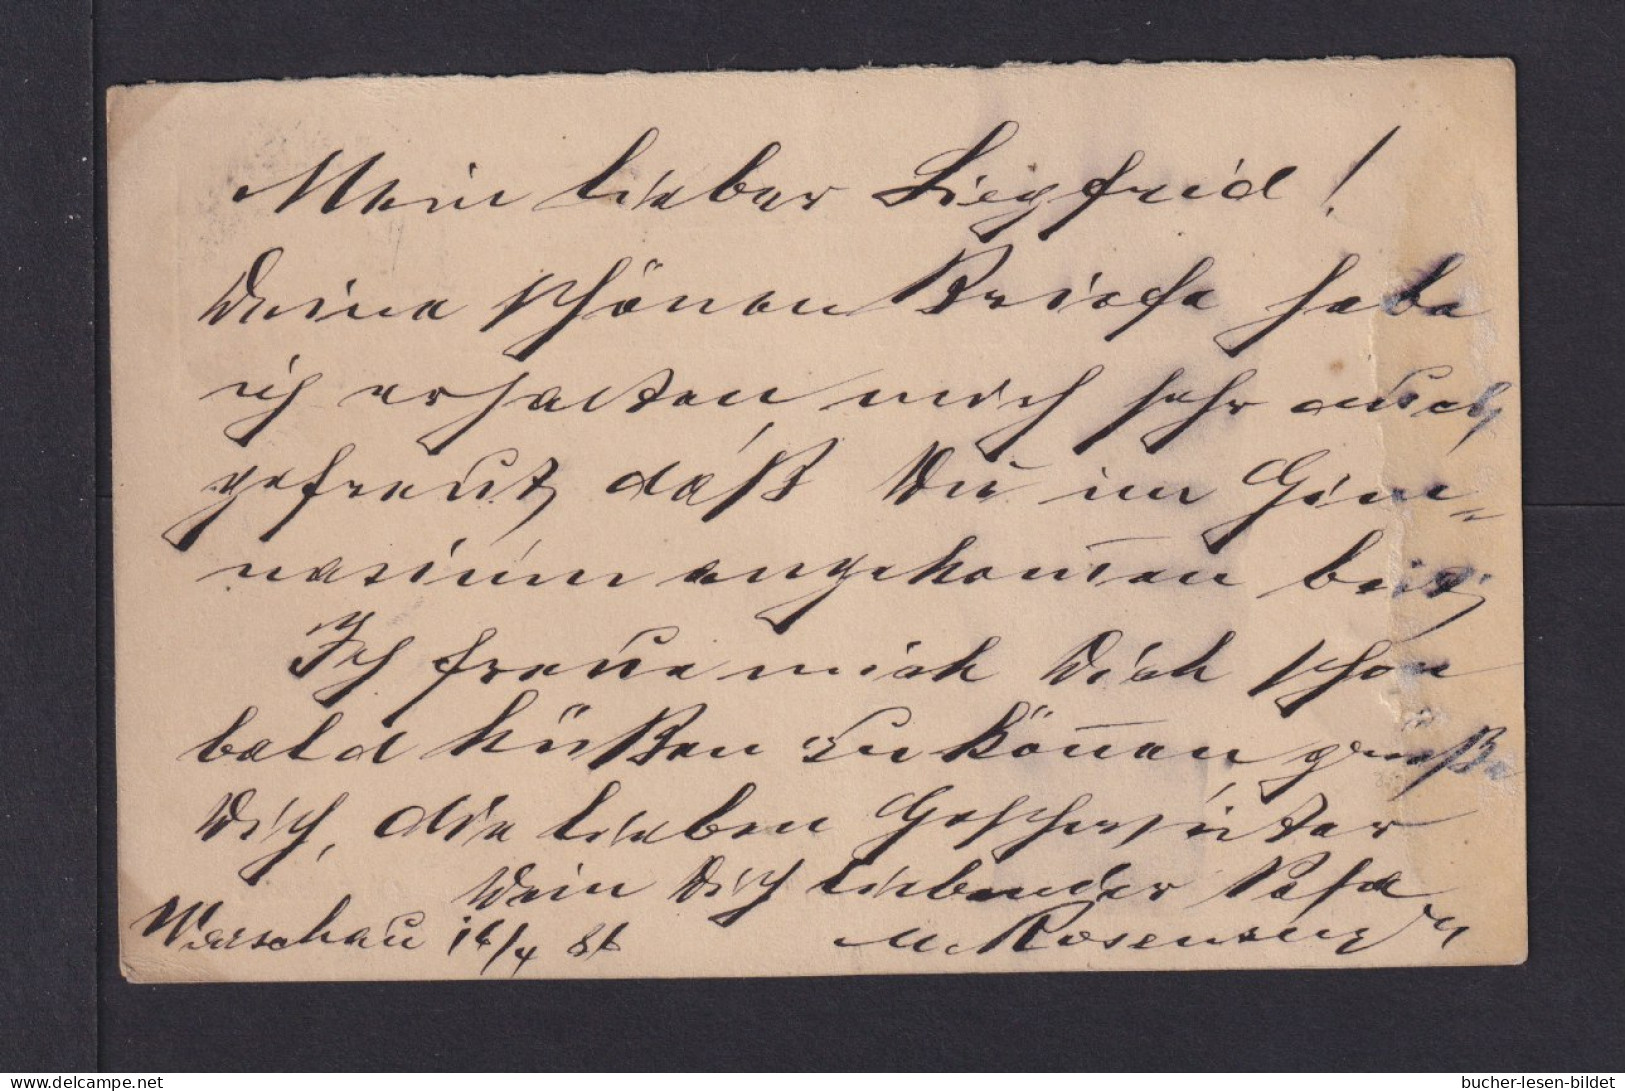 Mein lieber Siegfried!
Deine schönen Briefe habe
ich erhalten mich sehr auch
gefreut daß Du im Gim=
nasium angekom̄en bist
Ich freue mich Dich schon
bald küßen zu kön̄en grüße
Dich, die lieben Geschwister
Dein Dich liebender Papa
Warschau 16/4 86 M. Rosenberg
bucher-lesen-bildet